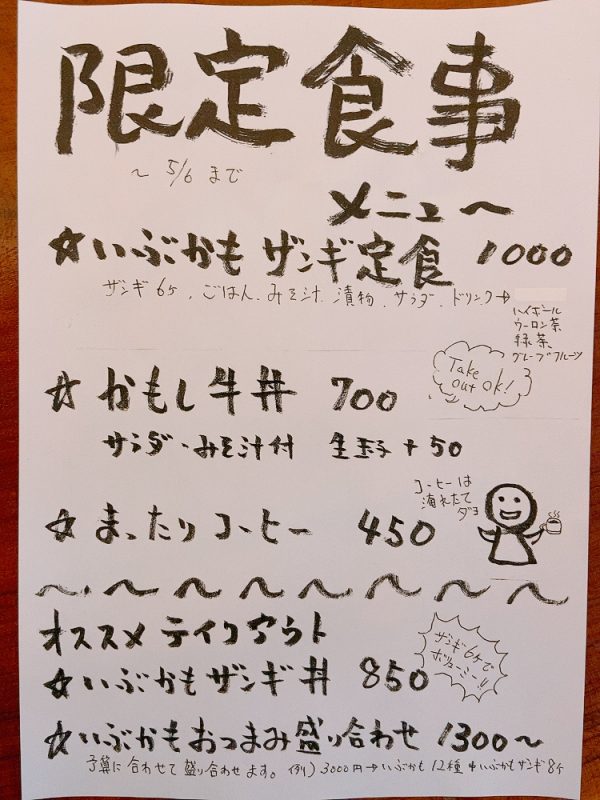 限定食事
～ 5/6 まで
メニュ～
☆いぶかもザンギ定食 1000
ザンギ6ヶ、ごはん、みそ汁、漬物、サラダ、ドリンク→
ハイボール
ウーロン茶
緑茶
グレープフルーツ
Take out ok!
☆かもし牛丼 700
サラダ・みそ汁付 生玉子+50
コーヒーは
淹れたて
ダヨ
☆まったりコーヒー 450
～～～～～～～～
オススメテイクアウト
☆いぶかもザンギ丼 850
ザンギ6ヶで
ボリューミー!!
☆いぶかもおつまみ盛り合わせ 1300～
予算に合わせて盛り合わせます。例) 3000円→いぶかも12種 いぶかもザンギ8ヶ